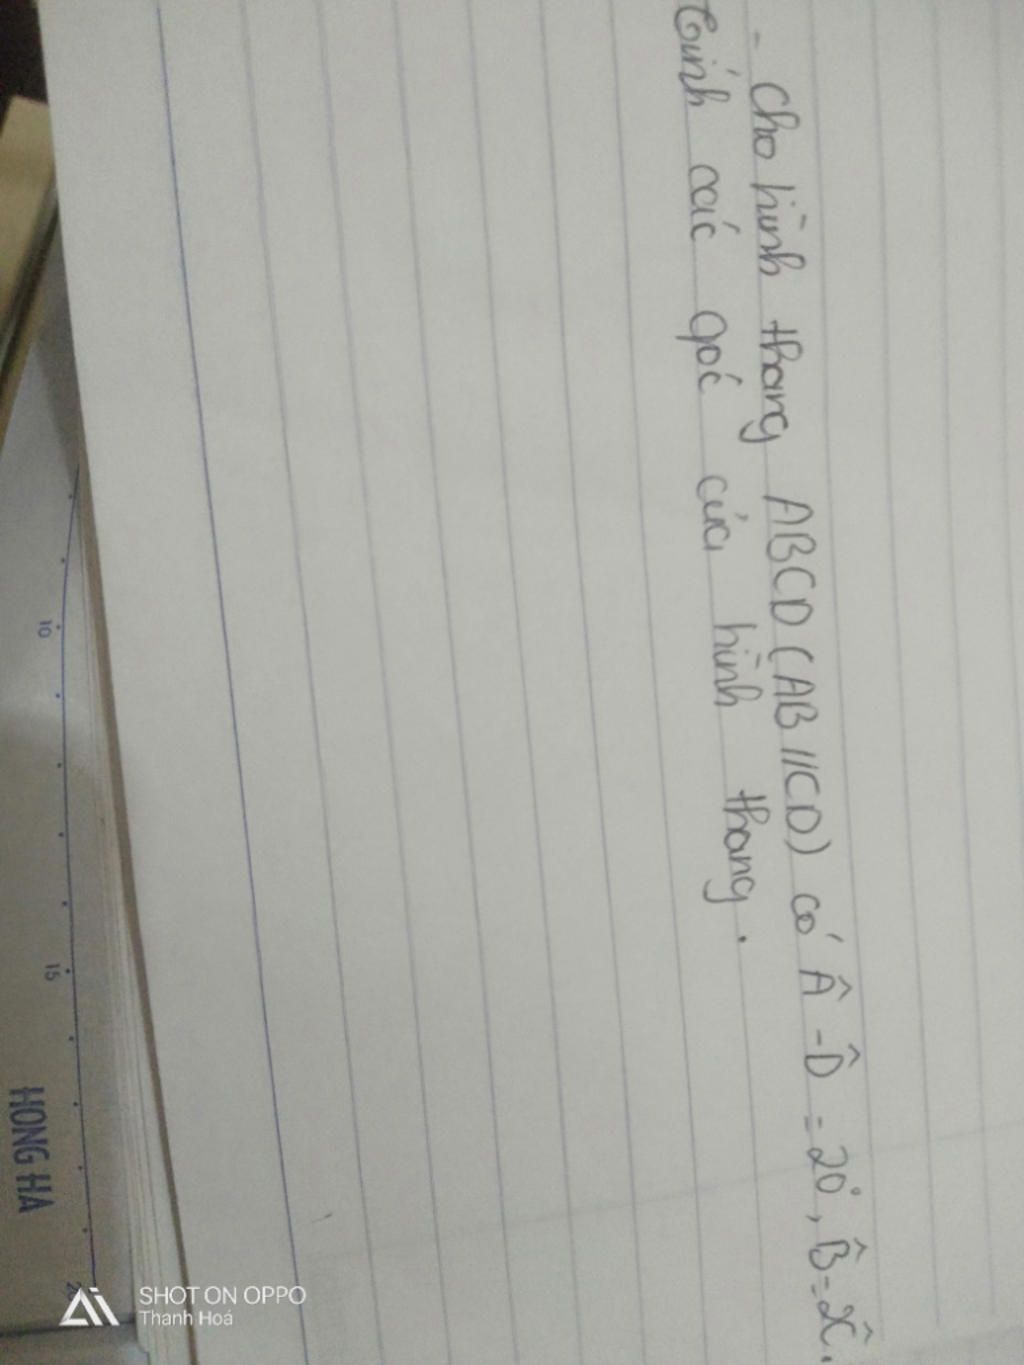 - Cho hình thang ABCD (AB//CD) có Â - D̂ = 20°, B̂ = 2Ĉ.
Tính các góc của hình thang.
10
15
HONG HA
SHOT ON OPPO
Thanh Hoá